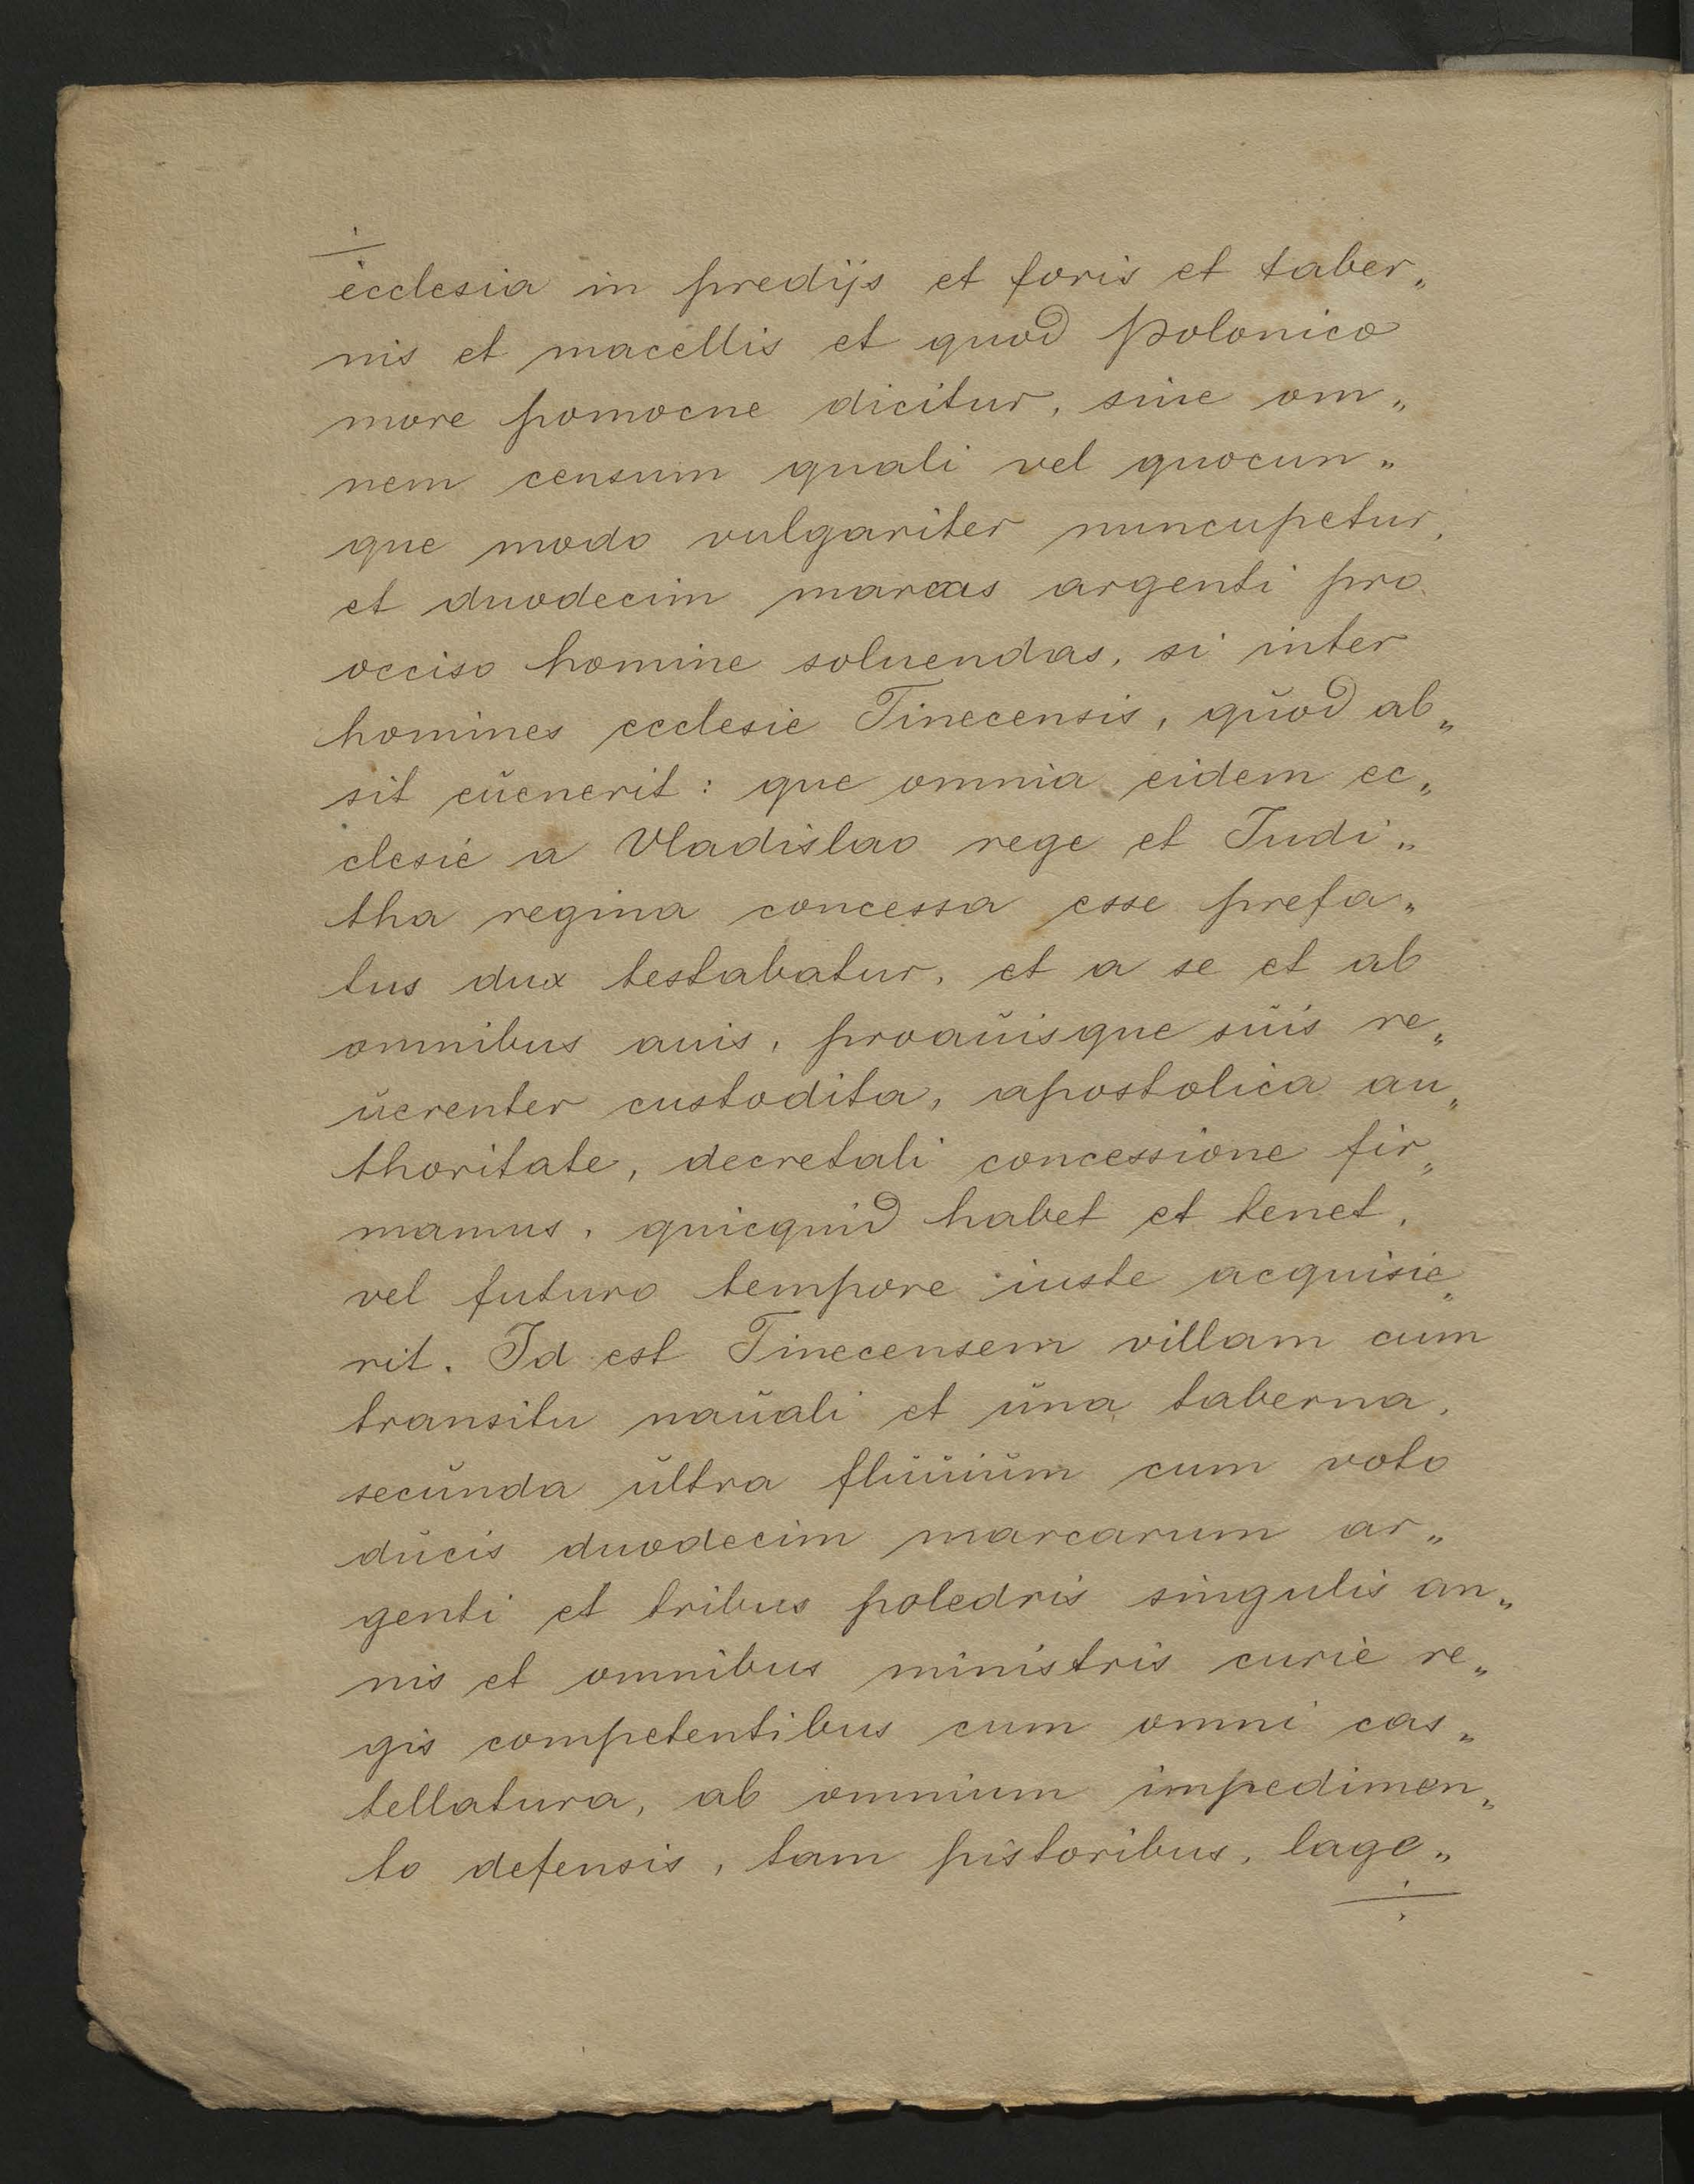 ecclesia in predijs et foris et taber„
nis et macellis et quod Polonico
more pomocne dicitur, siue om„
nem censum quali vel quocun„
que modo vulgariter nuncupetur,
et duodecim marcas argenti pro
occiso homine soluendas, si inter
homines ecclesie Tinecensis, qŭod ab„
sit eŭenerit: que omnia eidem ec„
clesie a Vladislao rege et Judi„
tha regina concessa esse prefa„
tus dux testabatur, et a se et ab
omnibus auis, proaŭisque sŭis re„
ŭerenter custodita, apostolica au„
thoritate, decretali concessione fir„
mamus, quicquid habet et tenet,
vel futuro tempore iuste acquisie„
rit. Id est Tinecensem villam cum
transitu naŭali et ŭna taberna,
secŭnda ŭltra flŭŭiŭm cum voto
dŭcis duodecim marcarum ar„
genti et tribus poledris singulis an„
nis et omnibus ministris curie re„
gis competentibus cum omni cas„
tellatura, ab omnium impedimen„
to defensis, tam pistoribus, lage„